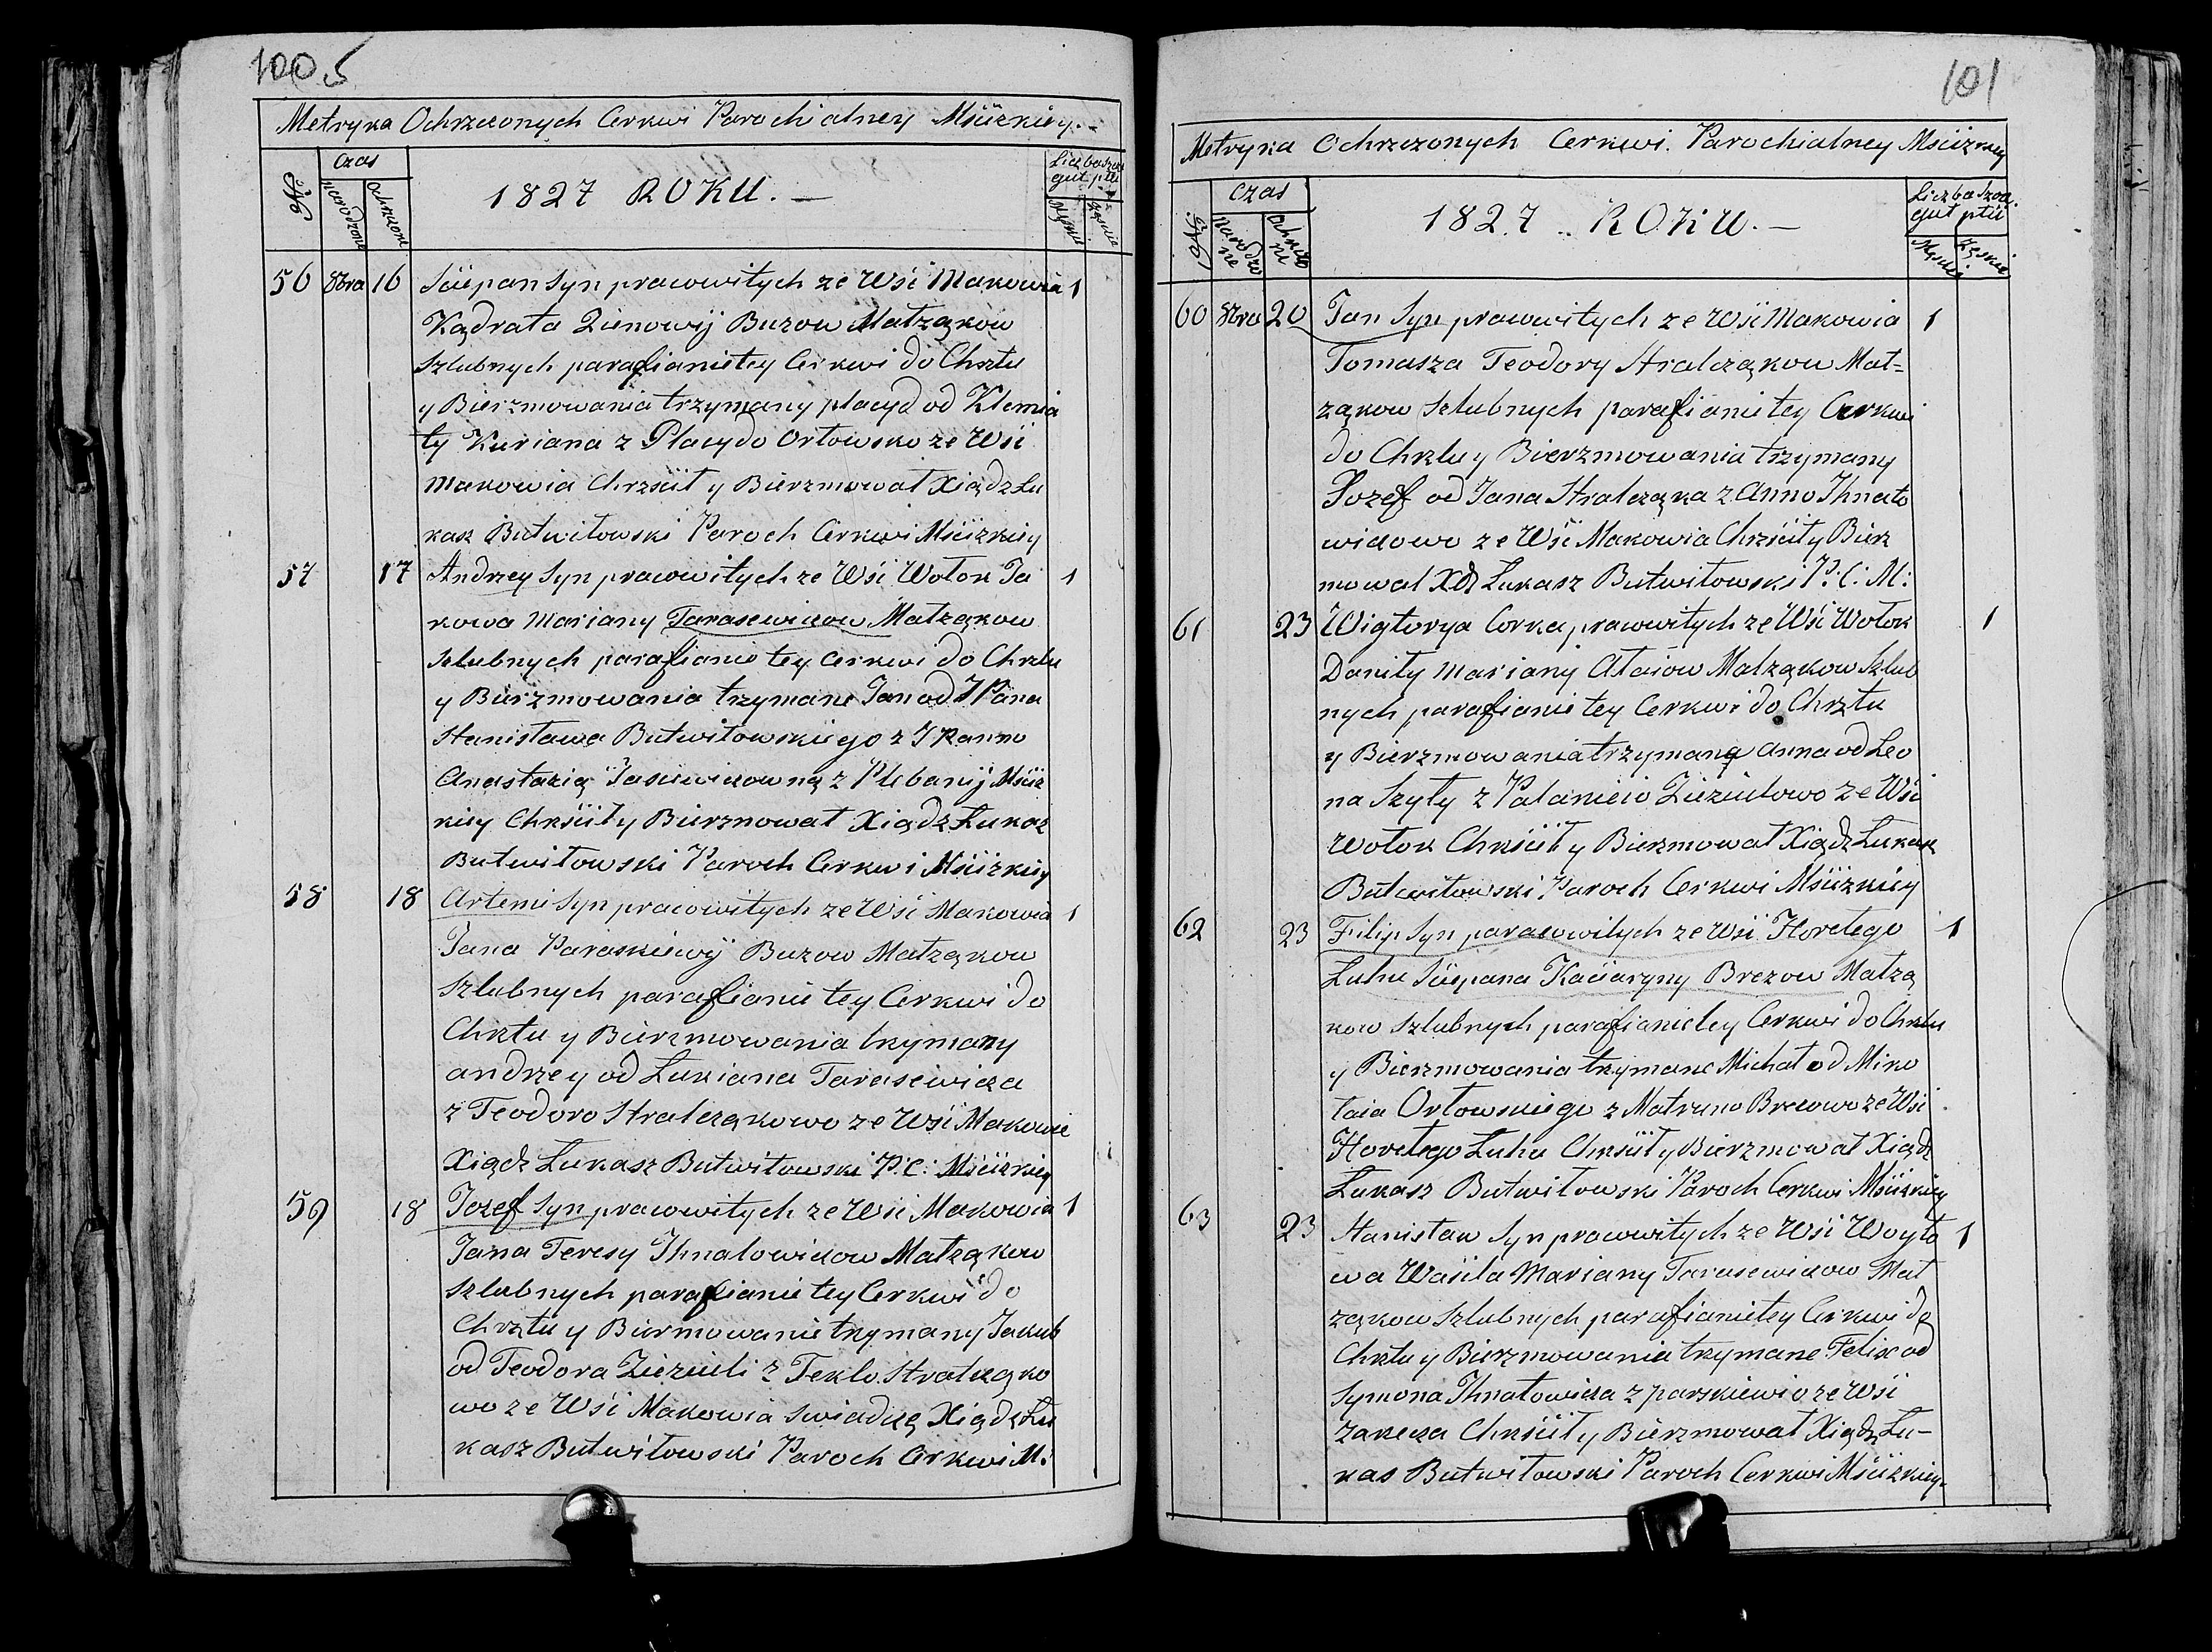 100 5
Metryka Ochrzczonych Cerkwi Parochialney Mścizkiey.
No
Czas
narodzone
Ochrzczone
1827 ROKU. —
Liczba szcze
gut płci
męska
żęskie
56 8bra 16 Sciepan Syn pracowitych ze Wsi Makowia 1
Kądrata Zienowij Buzow Małząkow
Szlubnych parafianie tey Cerkwi do Chrztu
y Bierzmowania trzymany placyd od Klemia
ty Kuriana z Placydo Orłowsko ze Wsi
Makowia Chrzscił y Bierzmował Xiądz Lu
kasz Butwiłowski Paroch Cerkwi Mścizkiey
57 17 Andrzey Syn pracowitych ze Wsi Wołok Ja 1
kowa Mariany Tarasewiczow Małząkow
Szlubnych parafianie tey Cerkwi do Chrztu
y Bierzmowania trzymane Jan od JPana
Stanisława Butwiłowskiego z JPanno
Anastazią Jasiewiczowną z Plebanij Mściz
kiey Chrścił y Bierzmował Xiądz Łukaz
Butwiłowski Paroch Cerkwi Mścizkiey
58 18 Artemi Syn pracowitych ze Wsi Makowia 1
Jana Paraskiewij Buzow Małząkow
Szlubnych parafianie tey Cerkwi do
Chrztu y Bierzmowania trzymany
andrzey od Łukiana Tarasewicza
z Teodoro Stralcząkowo ze Wsi Makowie
Xiądz Łukasz Butwiłowski P: C: Mścizkiey
59 18 Jozef Syn pracowitych ze Wsi Makowia 1
Jana Teresy Ihnatowiczow Małząkow
Szlubnych parafianie tey Cerkwi do
Chrztu y Biermowanie trzymany Jakub
od Teodora Ziezieli z Teklo Stralcząko
wo ze Wsi Makowia swiadczę Xiądz Łu
kasz Butwiłowski Paroch Cerkwi M:
101
Metryka Ochrzczonych Cerkwi. Parochialney Mścizkiey
No
Czas
1827 .. ROKU. —
Liczba szczę.
gut płci
Męskie
Zęskie
60 8bra 20 Jan Syn pracowitych ze Wsi Makowia 1
Tomasza Teodory Stralcząkow Mał=
ząkow Szlubnych parafianie tey Cerkwi
do Chrztu y Bierzmowania trzymany
Jozef od Jana Stralcząka z Anno Ihnato
wiczowo ze Wsi Makowia Chrzścił y Bierz
mował Xdz Łukasz Butwiłowski P: C: M:
61 23 Wigtorya Corka pracowitych ze Wsi Wołok 1
Daniły Mariany Ataiow Małząkow Szlub
nych parafianie tey Cerkwi do Chrztu
y Bierzmowania trzymaną Anna od Leo
na Szyły z Palanieio Zieziulowo ze Wsi
Wołok Chrścił y Bierzmował Xiądz Łukasz
Butwiłowski Paroch Cerkwi Mścizkiey
62 23 Filip Syn paracowitych ze Wsi Horełego 1
Łuhu Sciepana Kaciaryny Brezow Małzą
kow Szlubnych parafianie tey Cerkwi do Chrztu
y Bierzmowania trzymane Michał od Miko
łaia Orłowskiego z Matruno Brezowo ze Wsi
Horełego Łuhu Chrścił y Bierzmował Xiądz
Łukasz Butwiłowski Paroch Cerkwi Mścizkiey
63 23 Stanisław Syn pracowitych ze Wsi Woyto 1
wa Wasila Mariany Tarasewiczow Mał
ząkow Szlubnych parafianie tey Cerkwi do
Chrztu y Bierzmowania trzymane Felix od
Symona Ihnatowicza z parskiewio ze Wsi
Zarecza Chrścił y Bierzmował Xiądz Łu-
kas Butwiłowski Paroch Cerkwi Mścizkiey.